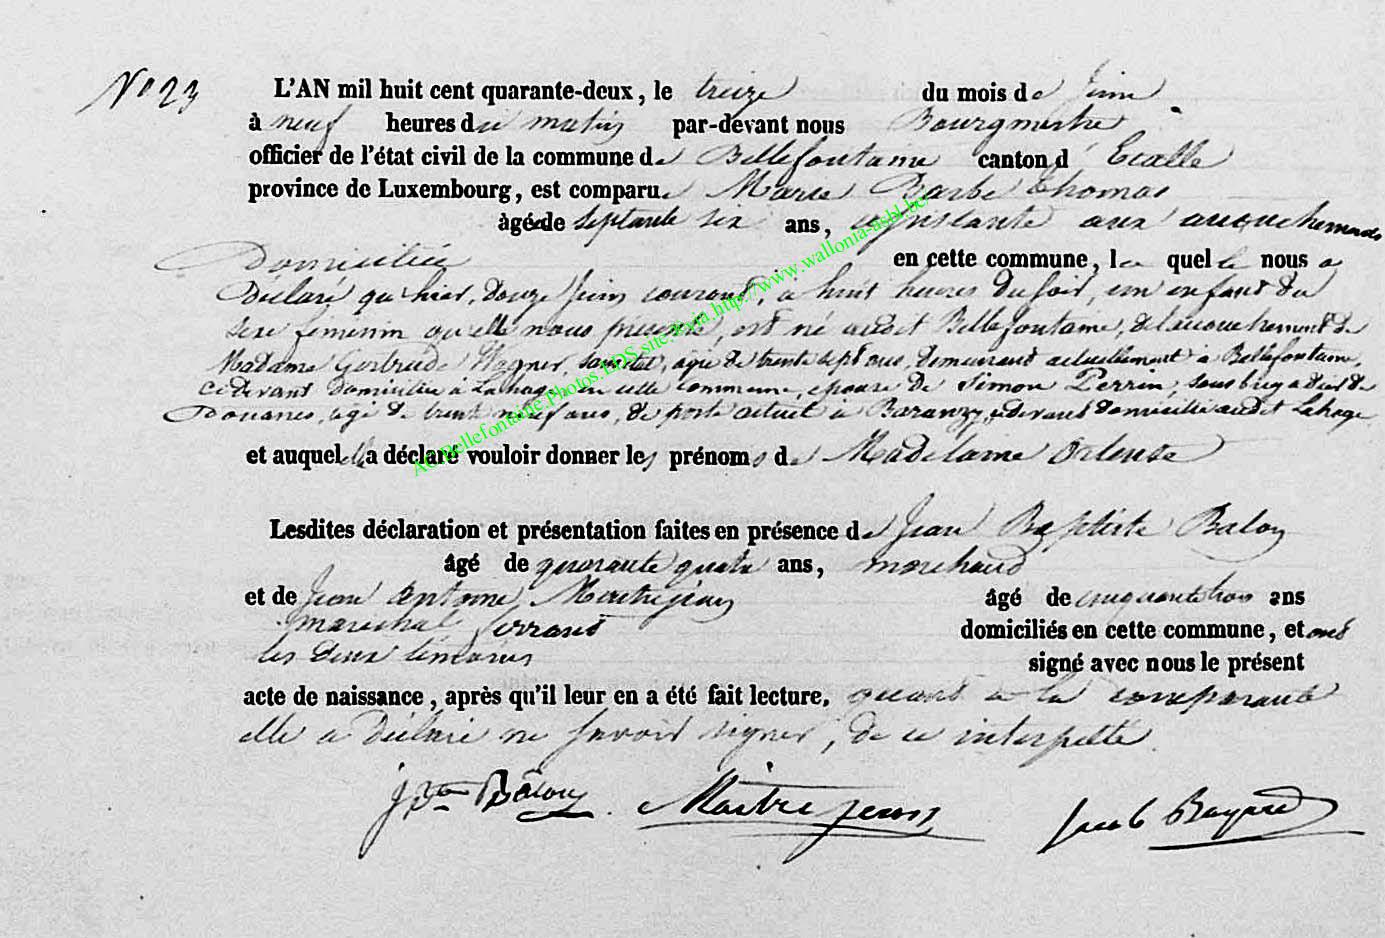 N° 23
L'AN mil huit cent quarante-deux, le treize du mois de Juin
à neuf heures du matin par-devant nous Bourgmestre
officier de l'état civil de la commune de Bellefontaine canton d' Etalle
province de Luxembourg, est comparue Marie Barbe Thomas
âgée de septante six ans, assistante aux accouchements
Domiciliée en cette commune, laquelle nous a
Déclaré qu'hier, douze Juin courant, à huit heures du soir, un enfant du
sexe féminin qu'elle nous présente, est né audit Bellefontaine, de l'accouchement de
Madame Gertrude Wagner, âgée de trente sept ans, demeurant actuellement à Bellefontaine,
ci-devant domiciliée à Lahage en cette commune, épouse de Simon Perrin, sous brigadier de
Douanes, âgé de trente neuf ans, de poste actuel à Baranzy, ci-devant domicilié audit Lahage
et auquel elle a déclaré vouloir donner les prénoms de Madelaine Ortense
Lesdites déclaration et présentation faites en présence de Jean Baptiste Balon
âgé de quarante quatre ans, marchand
et de Jean Antoine Maitrejean âgé de cinquante trois ans
marechal ferrant domiciliés en cette commune, et ont
les deux témoins signé avec nous le présent
acte de naissance, après qu'il leur en a été fait lecture, quant à la comparante
elle a déclaré ne savoir signer, de ce interpellé.
J Bte Balon Maitrejean Jacob Bayard
AC.Bellefontaine.Photos.EDS site.Via http://www.wallonia-asbl.be/